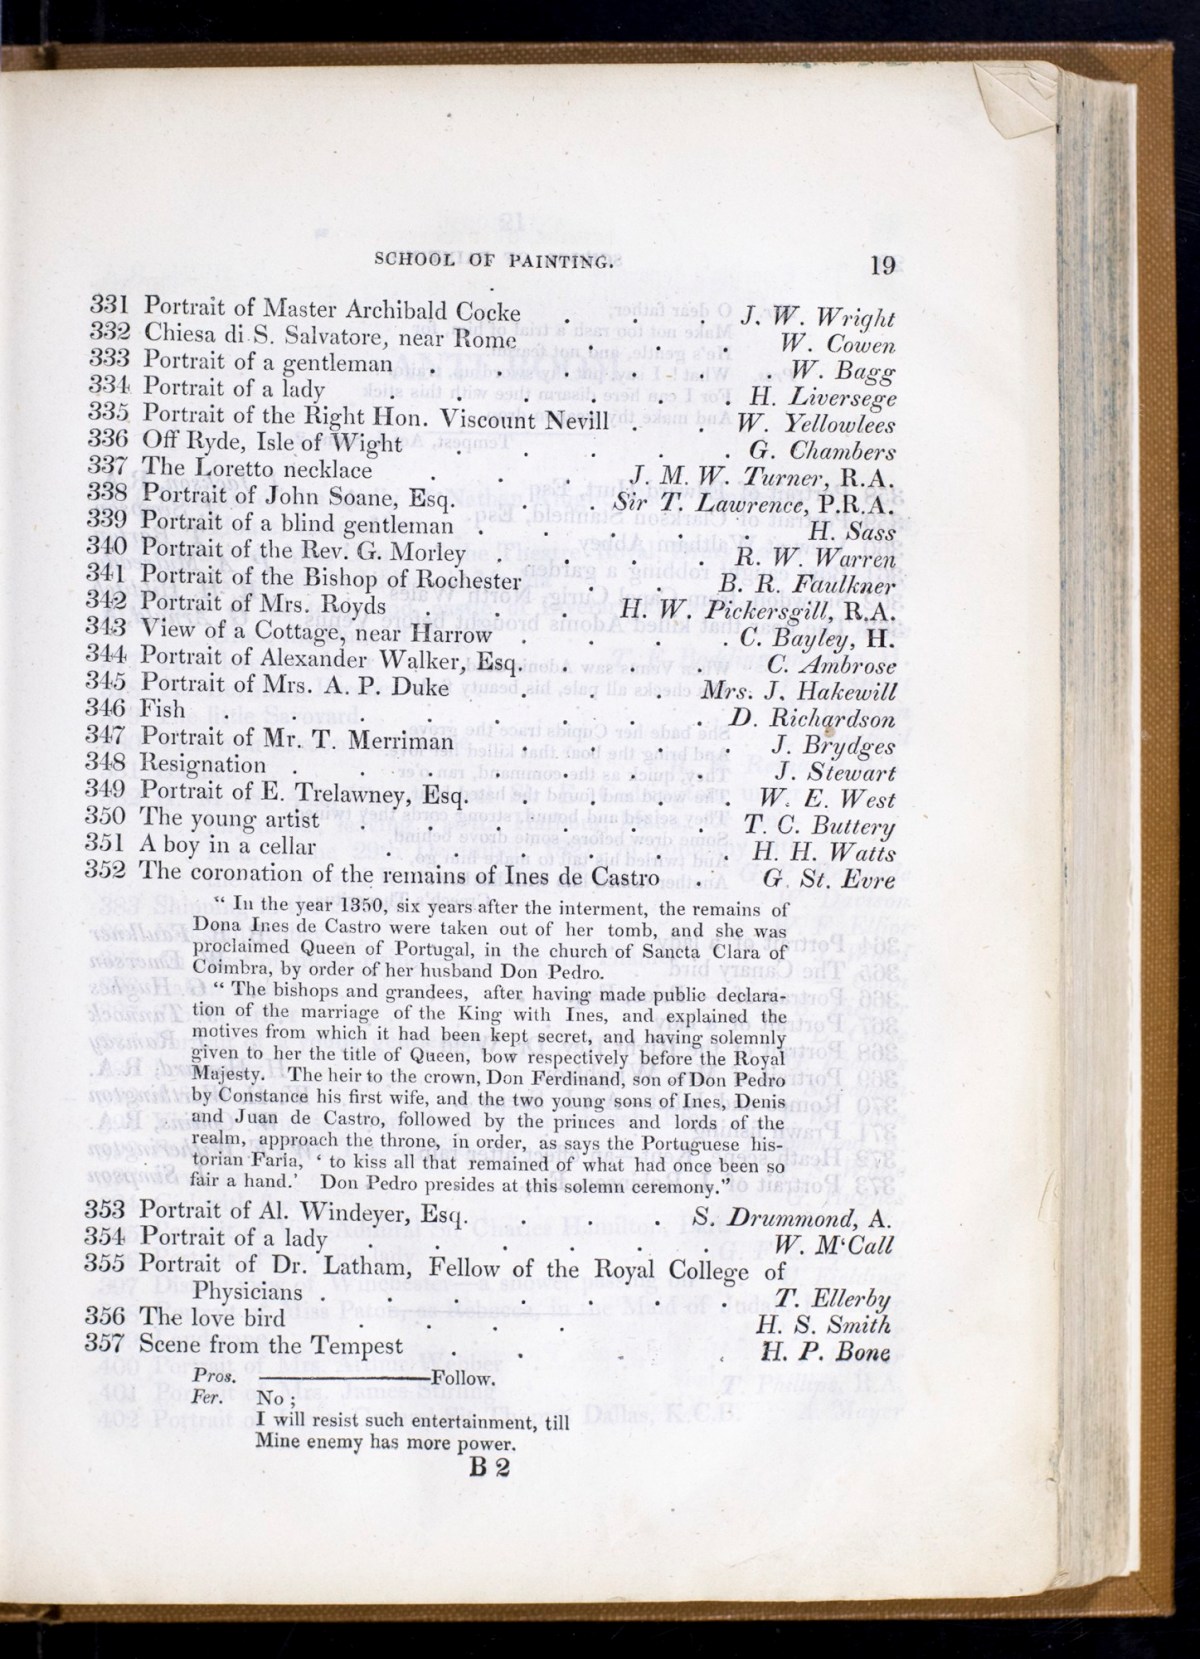 SCHOOL OF PAINTING. 19
331 Portrait of Master Archibald Cocke . . . J. W. Wright
332 Chiesa di S. Salvatore, near Rome . . . W. Cowen
333 Portrait of a gentleman . . . . . . W. Bagg
334 Portrait of a lady . . . . . H. Liversege
335 Portrait of the Right Hon. Viscount Nevill . . W. Yellowlees
336 Off Ryde, Isle of Wight . . . . . G. Chambers
337 The Loretto necklace . . . J. M. W. Turner, R.A.
338 Portrait of John Soane, Esq. . . Sir T. Lawrence, P.R.A.
339 Portrait of a blind gentleman . . . . . H. Sass
340 Portrait of the Rev. G. Morley . . . . R. W. Warren
341 Portrait of the Bishop of Rochester . . B. R. Faulkner
342 Portrait of Mrs. Royds . . . H. W. Pickersgill, R.A.
343 View of a Cottage, near Harrow . . . . C. Bayley, H.
344 Portrait of Alexander Walker, Esq. . . . C. Ambrose
345 Portrait of Mrs. A. P. Duke . . . Mrs. J. Hakewill
346 Fish . . . . . . . . D. Richardson
347 Portrait of Mr. T. Merriman . . . . J. Brydges
348 Resignation . . . . . . . J. Stewart
349 Portrait of E. Trelawney, Esq. . . . . W. E. West
350 The young artist . . . . . . T. C. Buttery
351 A boy in a cellar . . . . . . H. H. Watts
352 The coronation of the remains of Ines de Castro . G. St. Evre
“ In the year 1350, six years after the interment, the remains of
Dona Ines de Castro were taken out of her tomb, and she was
proclaimed Queen of Portugal, in the church of Sancta Clara of
Coimbra, by order of her husband Don Pedro.
“ The bishops and grandees, after having made public declara-
tion of the marriage of the King with Ines, and explained the
motives from which it had been kept secret, and having solemnly
given to her the title of Queen, bow respectively before the Royal
Majesty. The heir to the crown, Don Ferdinand, son of Don Pedro
by Constance his first wife, and the two young sons of Ines, Denis
and Juan de Castro, followed by the princes and lords of the
realm, approach the throne, in order, as says the Portuguese his-
torian Faria, ‘ to kiss all that remained of what had once been so
fair a hand.’ Don Pedro presides at this solemn ceremony.”
353 Portrait of Al. Windeyer, Esq. . . . S. Drummond, A.
354 Portrait of a lady . . . . . . W. M‘Call
355 Portrait of Dr. Latham, Fellow of the Royal College of
Physicians . . . . . . . T. Ellerby
356 The love bird . . . . H. S. Smith
357 Scene from the Tempest . . . . H. P. Bone
Pros. ————Follow.
Fer. No ;
I will resist such entertainment, till
Mine enemy has more power.
B 2